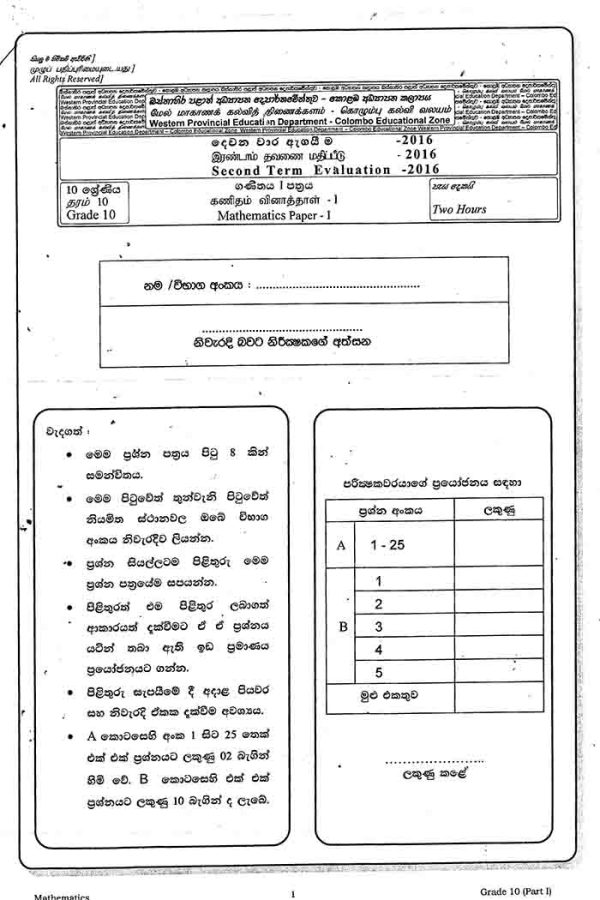 සියලු ම හිමිකම් ඇවිරිණි]
முழுப் பதிப்புரிமையுடையது]
All Rights Reserved]
බස්නාහිර පළාත් අධ්‍යාපන දෙපාර්තමේන්තුව - කොළඹ අධ්‍යාපන කලාපය
மேல் மாகாணக் கல்வித் திணைக்களம் - கொழும்பு கல்வி வலயம்
Western Provincial Education Department - Colombo Educational Zone
දෙවන වාර ඇගයීම -2016
இரண்டாம் தவணை மதிப்பீடு - 2016
Second Term Evaluation -2016
10 ශ්‍රේණිය
தரம் 10
Grade 10
ගණිතය I පත්‍රය
கணிதம் வினாத்தாள் - I
Mathematics Paper - I
පැය දෙකයි
Two Hours
නම /විභාග අංකය : ................................................
................................................
නිවැරදි බවට නිරීක්ෂකගේ අත්සන
වැදගත් :
• මෙම ප්‍රශ්න පත්‍රය පිටු 8 කින්
සමන්විතය.
• මෙම පිටුවේත් තුන්වැනි පිටුවේත්
නියමිත ස්ථානවල ඔබේ විභාග
අංකය නිවැරදිව ලියන්න.
• ප්‍රශ්න සියල්ලටම පිළිතුරු මෙම
ප්‍රශ්න පත්‍රයේම සපයන්න.
• පිළිතුරත් එම පිළිතුර ලබාගත්
ආකාරයත් දැක්වීමට ඒ ඒ ප්‍රශ්නය
යටින් තබා ඇති ඉඩ ප්‍රමාණය
ප්‍රයෝජනයට ගන්න.
• පිළිතුරු සැපයීමේ දී අදාළ පියවර
සහ නිවැරදි ඒකක දැක්වීම අවශ්‍යය.
• A කොටසෙහි අංක 1 සිට 25 තෙක්
එක් එක් ප්‍රශ්නයට ලකුණු 02 බැගින්
හිමි වේ. B කොටසෙහි එක් එක්
ප්‍රශ්නයට ලකුණු 10 බැගින් ද ලැබේ.
පරීක්ෂකවරයාගේ ප්‍රයෝජනය සඳහා
ප්‍රශ්න අංකය ලකුණු
A 1 - 25
1
2
B 3
4
5
මුළු එකතුව
........................
ලකුණු කළේ
Mathematics 1 Grade 10 (Part I)